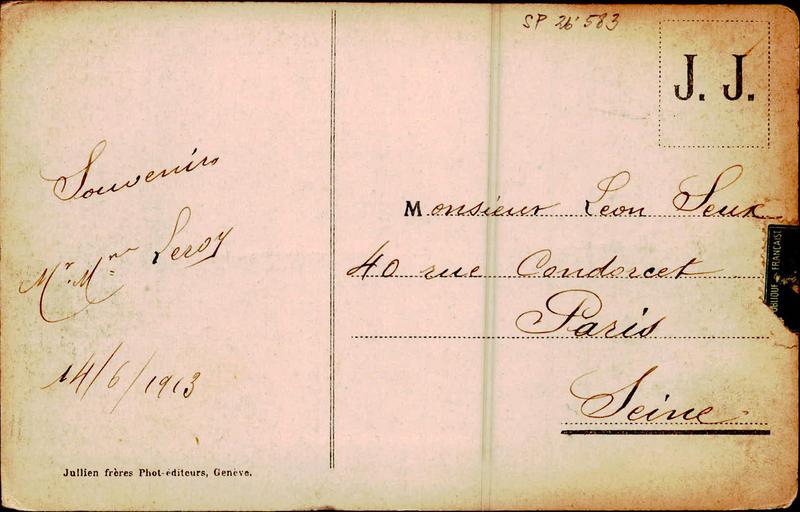 SP 26 583
J. J.
Souvenir
Mr. Mme Leroy
14/6/1913
Monsieur Leon Seux
40 rue Condorcet
Paris
Seine
FRANÇAISE
Jullien frères Phot-éditeurs, Genève.